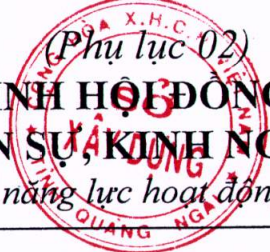 (Phụ lục 02)
INH HỘI ĐỒNG
N SỰ, KINH NG
năng lực hoạt độn
X.H.C.
SỞ
XÂY DỰNG
QUẢNG NGÃI